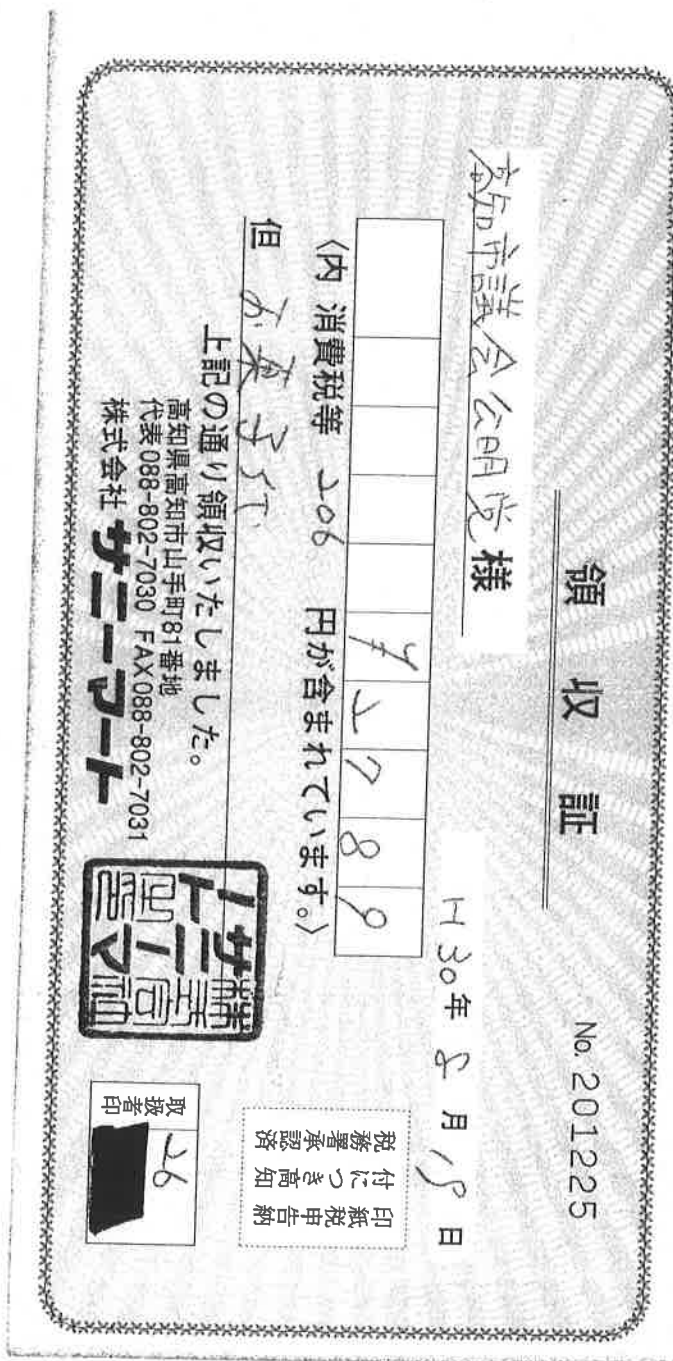 領収証
No. 201225
高知市議会公明党 様
H30年 8月 15日
¥2789
〈内 消費税等 206 円が含まれています。〉
但 お菓子代
上記の通り領収いたしました。
高知県高知市山手町81番地
代表088-802-7030 FAX088-802-7031
株式会社 サニーマート
印紙税申告納
付につき高知
税務署承認済
取扱者印
26